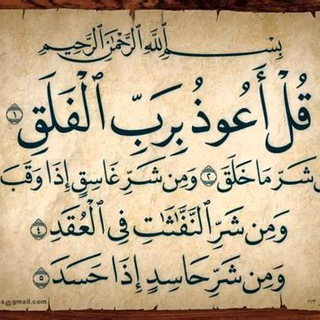 بِسْمِ اللَّهِ الرَّحْمَٰنِ الرَّحِيمِ
قُلْ أَعُوذُ بِرَبِّ الْفَلَقِ ١
شَرِّ مَا خَلَقَ ٢ وَمِن شَرِّ غَاسِقٍ إِذَا وَقَبَ
وَمِن شَرِّ النَّفَّاثَاتِ فِي الْعُقَدِ ٤
وَمِن شَرِّ حَاسِدٍ إِذَا حَسَدَ ٥
s@gmail.com ١١٣